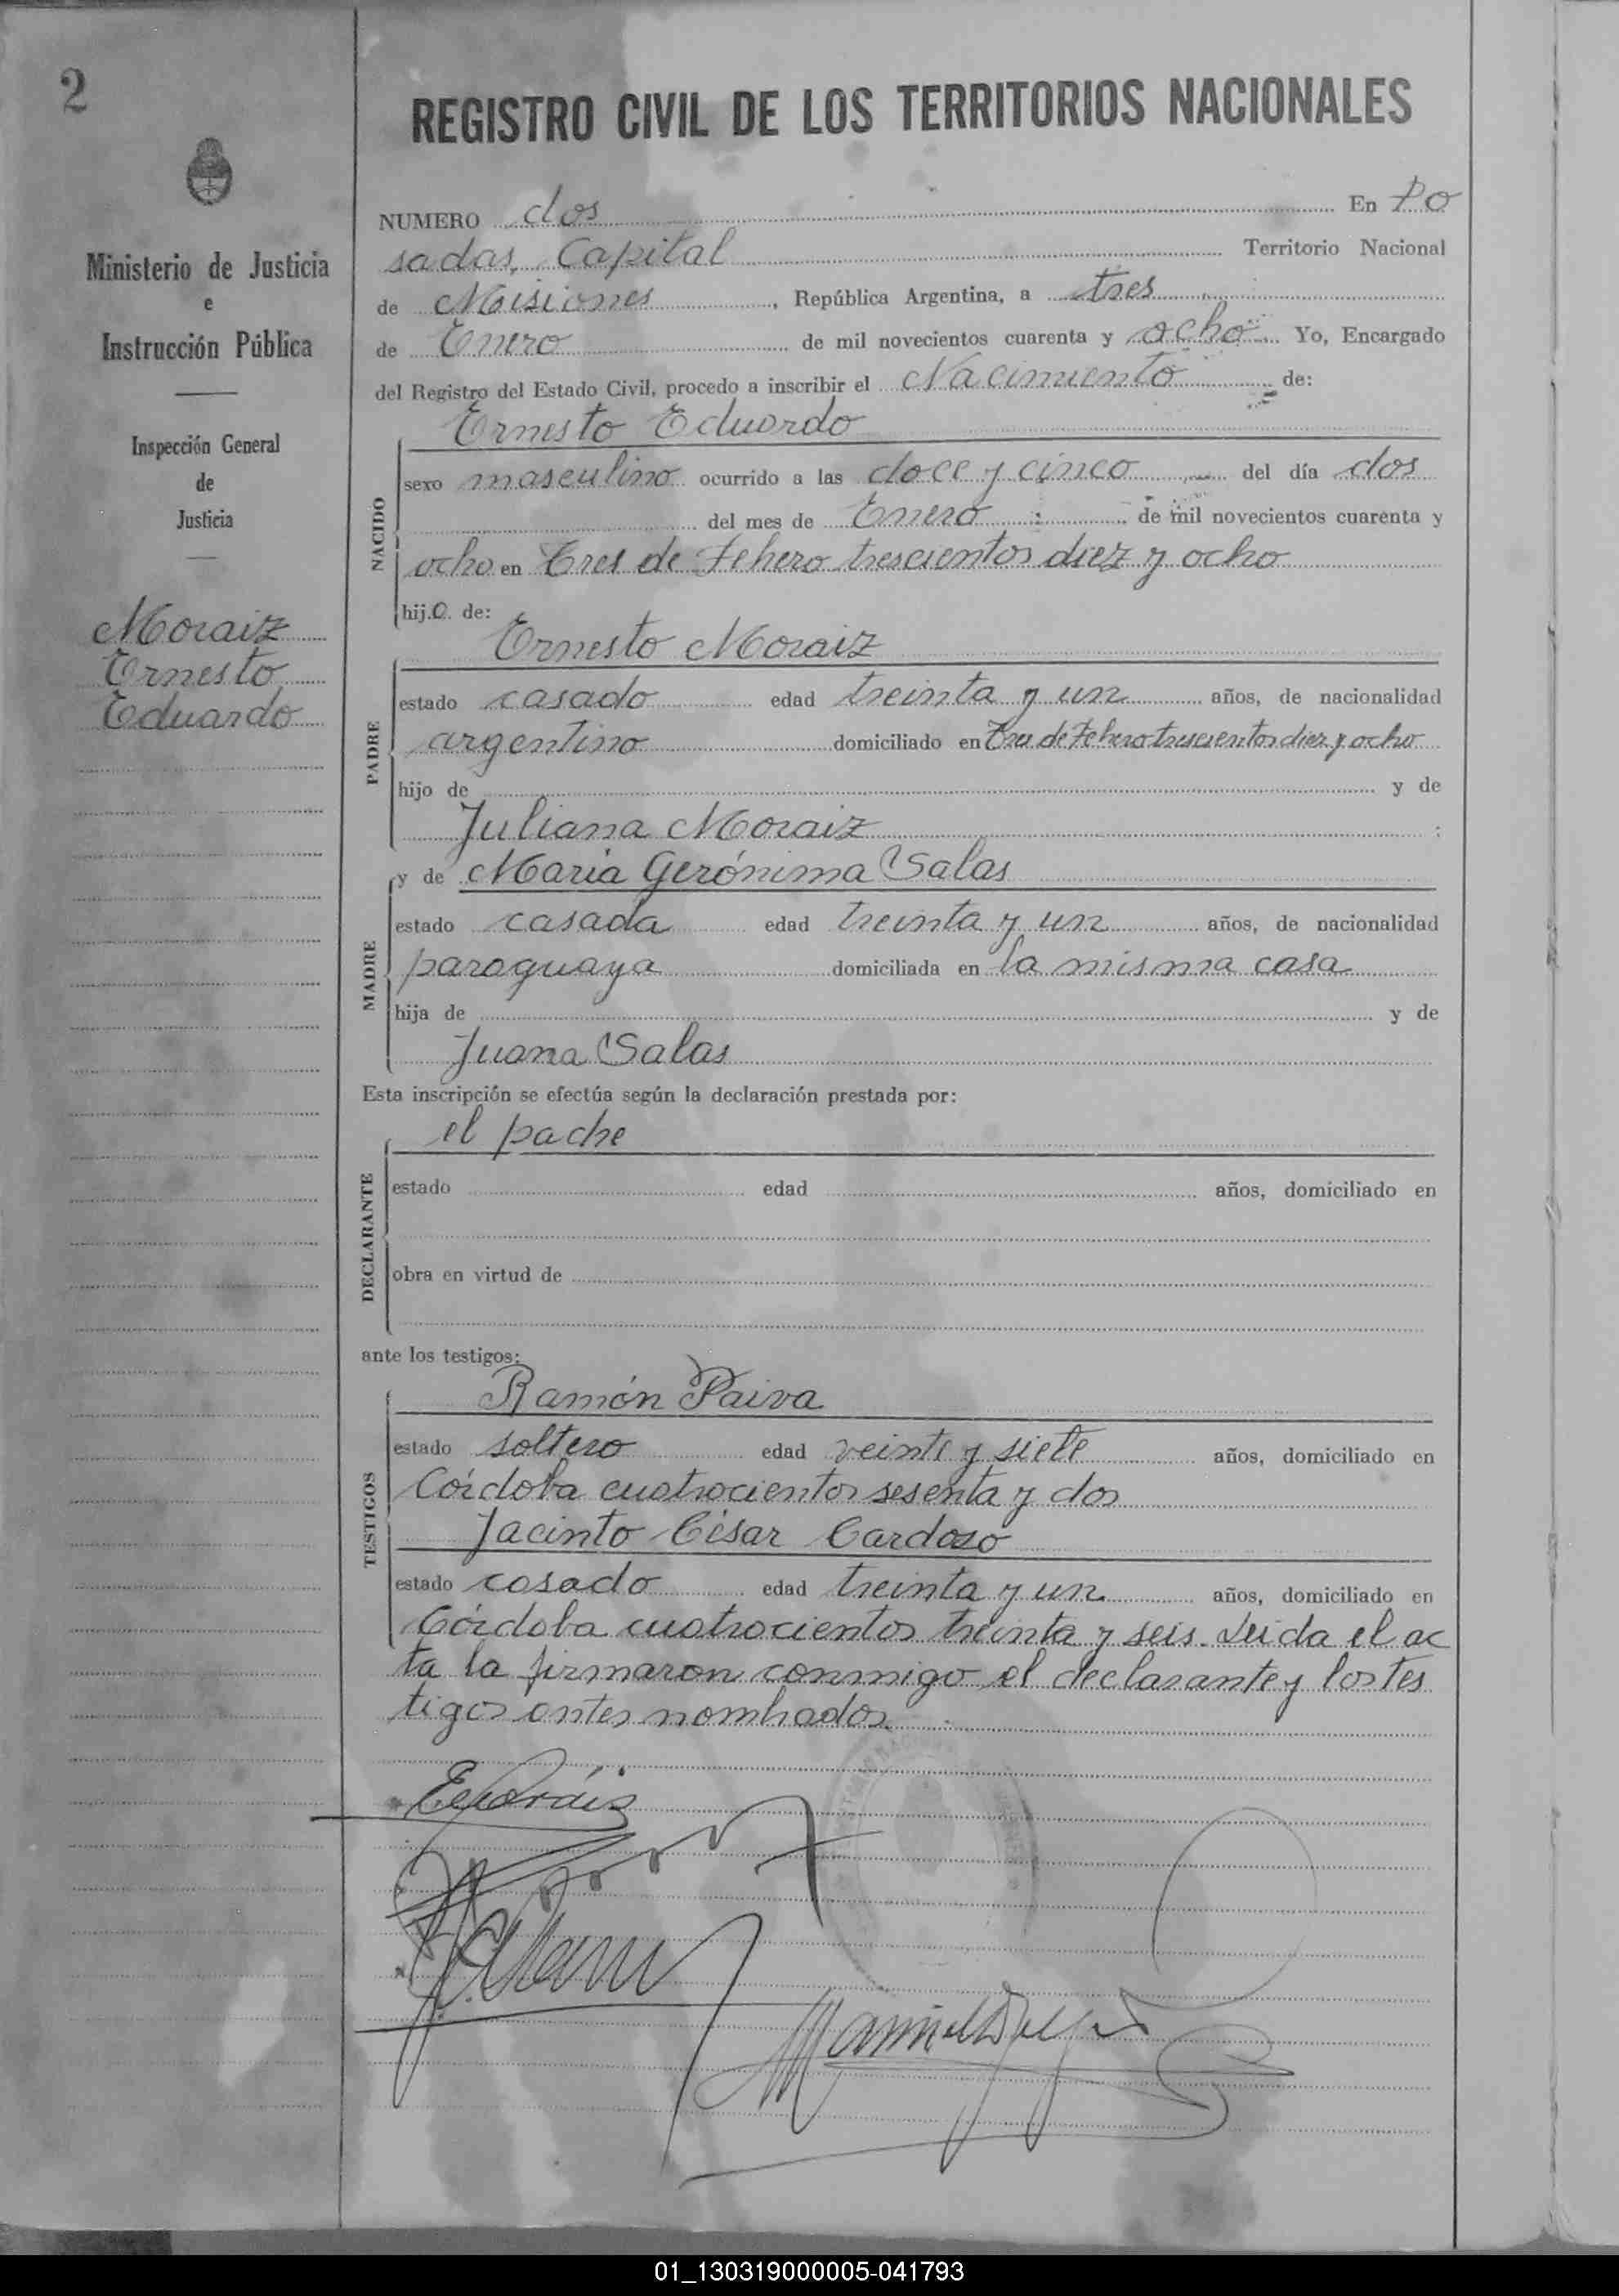 2
Ministerio de Justicia
e
Instrucción Pública
Inspección General
de
Justicia
Moraiz
Ernesto
Eduardo
REGISTRO CIVIL DE LOS TERRITORIOS NACIONALES
NUMERO dos En Po
sadas, Capital Territorio Nacional
de Misiones, República Argentina, a tres
de Enero de mil novecientos cuarenta y ocho Yo, Encargado
del Registro del Estado Civil, procedo a inscribir el Nacimiento de:
Ernesto Eduardo
NACIDO
sexo masculino ocurrido a las doce y cinco del día dos
del mes de Enero de mil novecientos cuarenta y
ocho en Tres de Febrero trescientos diez y ocho
hijo de:
Ernesto Moraiz
PADRE
estado casado edad treinta y un años, de nacionalidad
argentino domiciliado en Tres de Febrero trescientos diez y ocho
hijo de y de
Juliana Moraiz
y de María Gerónima Salas
MADRE
estado casada edad treinta y un años, de nacionalidad
paraguaya domiciliada en la misma casa
hija de y de
Juana Salas
Esta inscripción se efectúa según la declaración prestada por:
el padre
DECLARANTE
estado edad años, domiciliado en
obra en virtud de
ante los testigos:
Ramón Paiva
TESTIGOS
estado soltero edad veinte y siete años, domiciliado en
Córdoba cuatrocientos sesenta y dos
Jacinto César Cardozo
estado casado edad treinta y un años, domiciliado en
Córdoba cuatrocientos treinta y seis. Leida el ac
ta la firmaron conmigo el declarante y los tes
tigos antes nombrados.
01_130319000005-041793